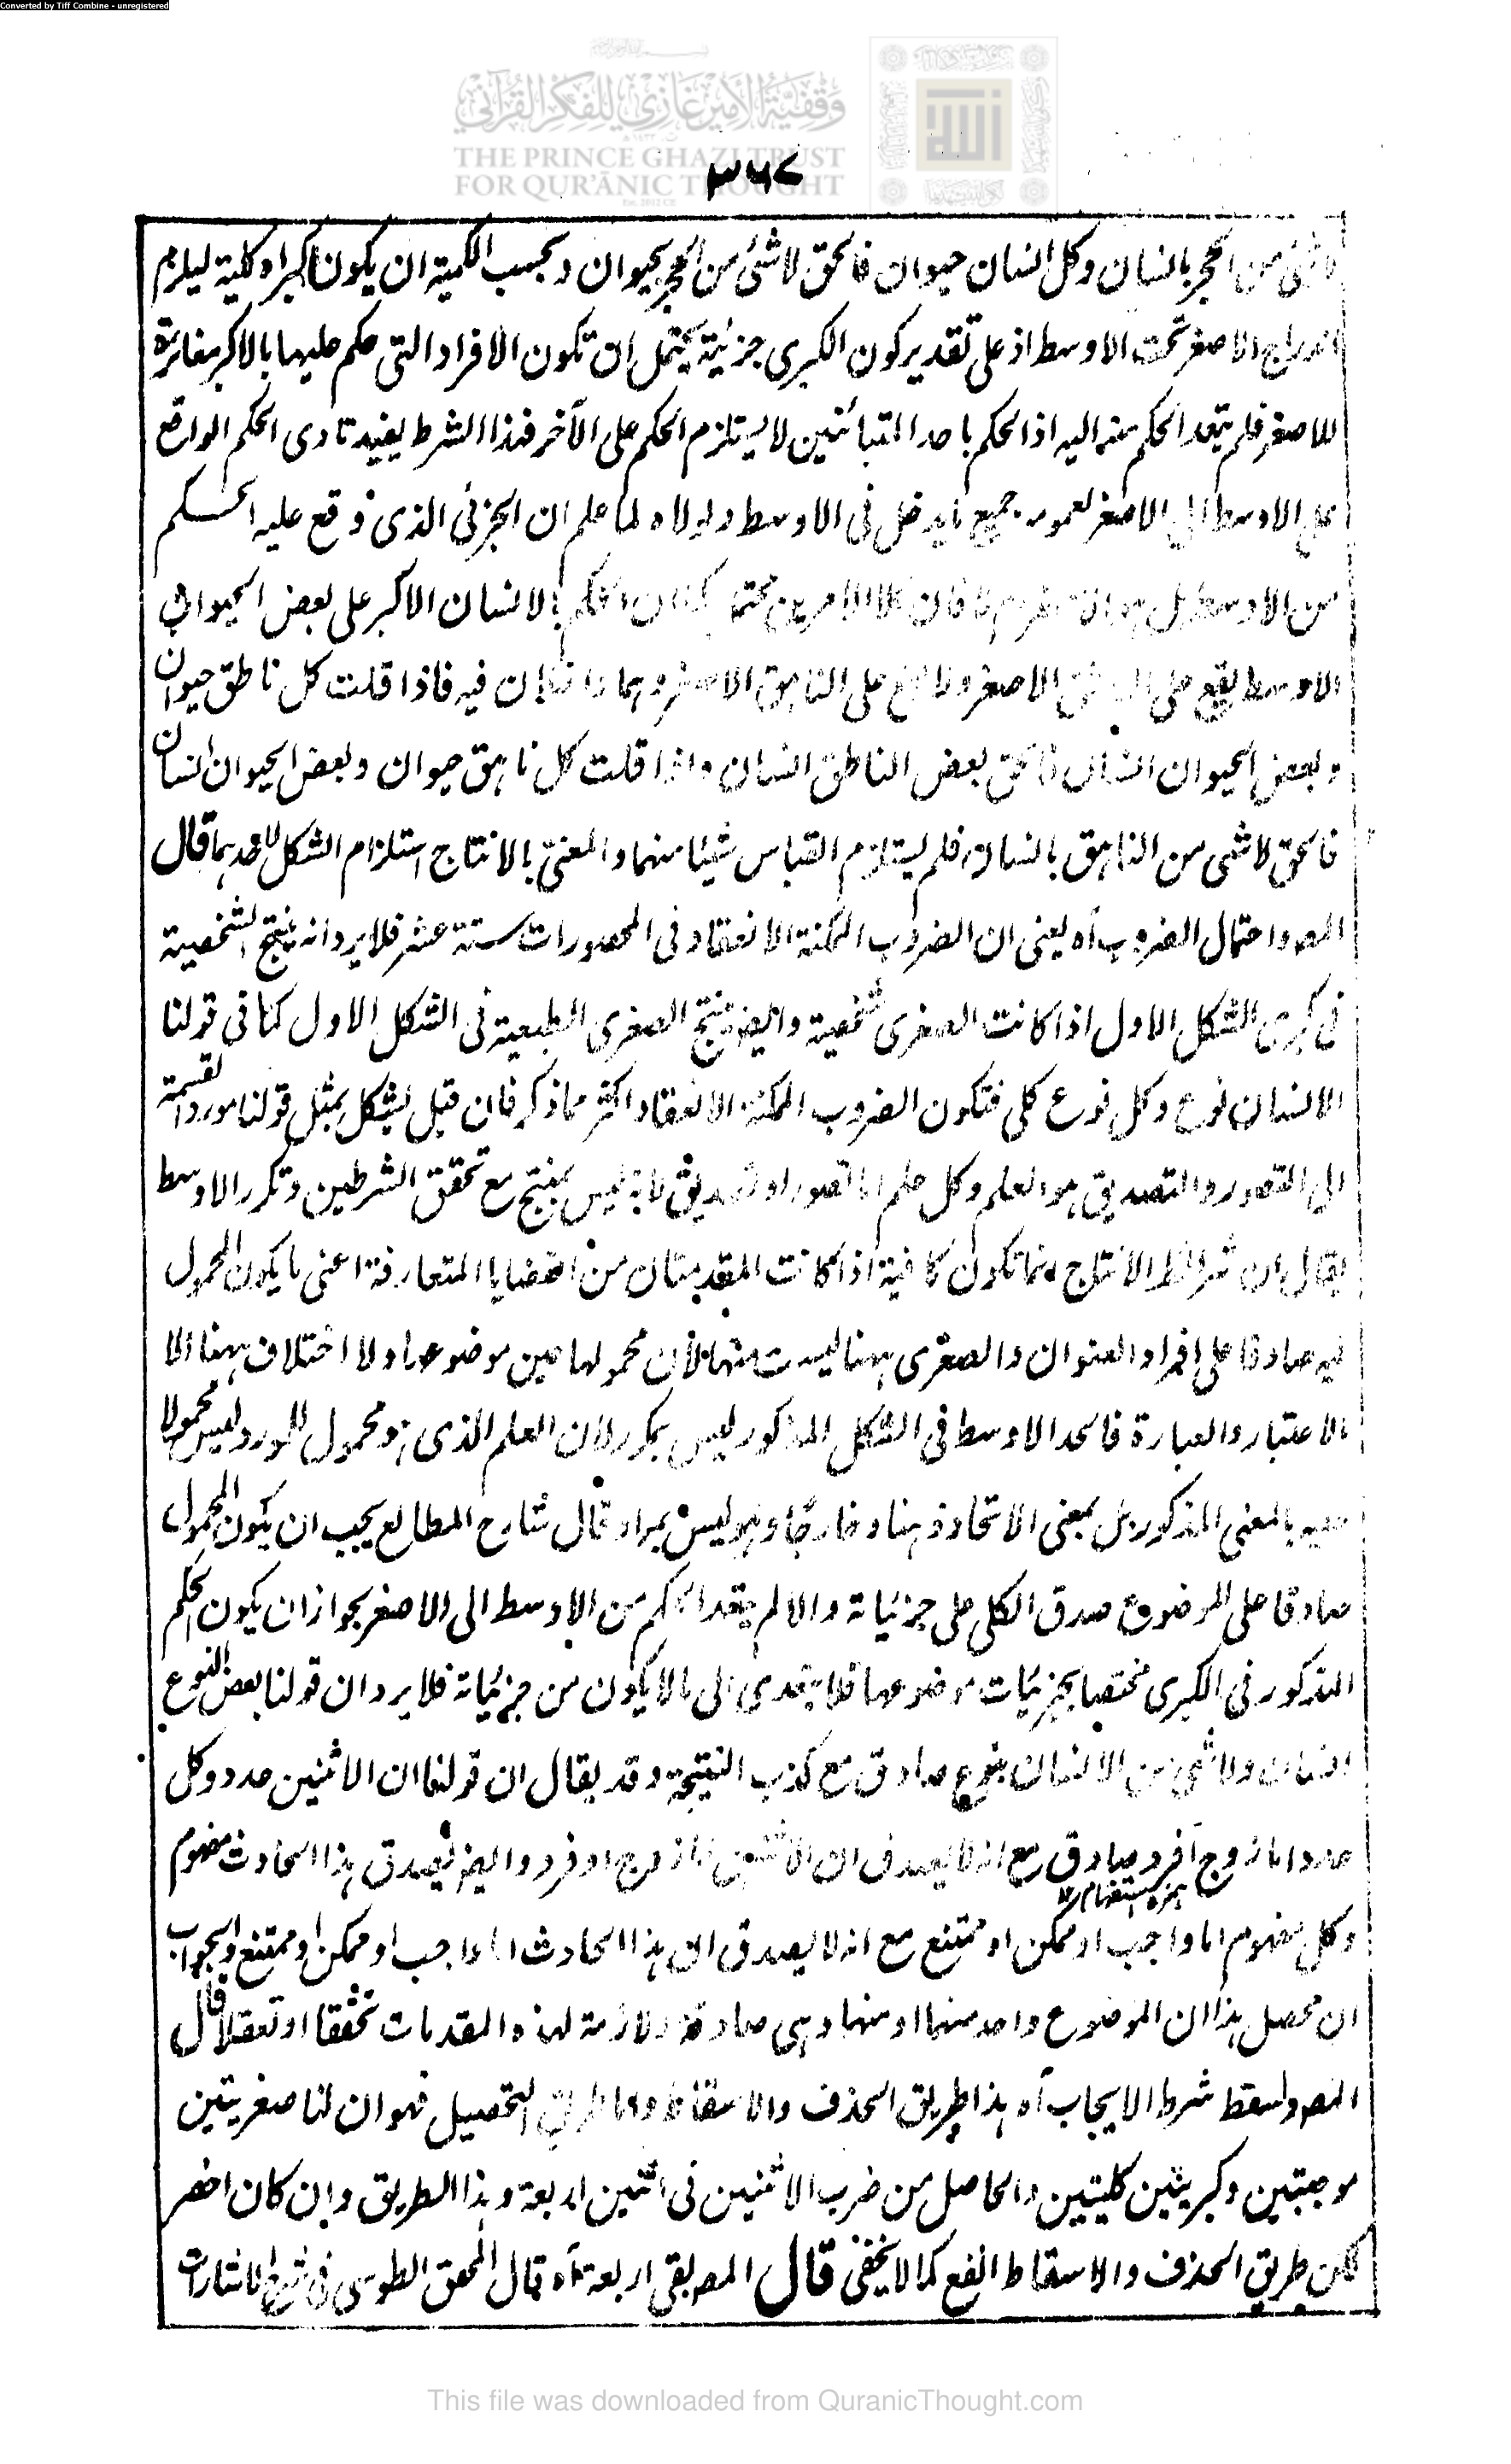 Converted by Tiff Combine - unregistered
وقفية الأمير غازي للفكر القرآني
THE PRINCE GHAZI TRUST
FOR QUR'ĀNIC THOUGHT
٣٦٧
لاشئ من الحجر بانسان وكل انسان حيوان فالحق لاشئ من الحجر بحيوان وبحسب الكمية ان يكون كبراه كلية ليلزم
اندراج الاصغر تحت الاوسط اذ على تقدير كون الكبرى جزئية يحتمل ان تكون الافراد التى حكم عليها بالاكبر مغائرة
للاصغر فلم يتعد الحكم منه اليه اذ الحكم باحد المتبائنين لا يستلزم الحكم على الآخر فهذا الشرط يفيد تادى الحكم الواقع
على الاوسط الى الاصغر لعمومه جميع ما يدخل فى الاوسط ولولاه لما علم ان الجزئى الذى وقع عليه الحكم
من الاوسط هل هو الاصغر ام لا فان كلا الامرين محتمل كما ان الحكم بالانسان الاكبر على بعض الحيوان
الاوسط يقع على الناطق الاصغر ولا يقع على الناهق الاصغر وهما داخلان فيه فاذا قلت كل ناطق حيوان
وبعض الحيوان انسان فالحق بعض الناطق انسان واذا قلت كل ناهق حيوان وبعض الحيوان انسان
فالحق لاشئ من الناهق بانسان فلم يستلزم القياس شيئا منهما والمعنى بالانتاج استلزام الشكل لاحدهما قال
المصـ واحتمال الضروب آه يعنى ان الضروب الممكنة الانعقاد فى المحصورات ستة عشر فلا يرد انه ينتج الشخصية
فى كبرى الشكل الاول اذا كانت الصغرى شخصية وايضـ ينتج الصغرى الطبعية فى الشكل الاول كما فى قولنا
الانسان نوع وكل نوع كلى فتكون الضروب الممكنة الانعقاد اكثر مما ذكر فان قيل يشكل بمثل قولنا مورد القسمة
الى التصور والتصديق هو العلم وكل علم اما تصور او تصديق لانه ليس بمنتج مع تحقق الشرطين وتكرر الاوسط
يقال ان شرائط الانتاج انما تكون كافية اذا كانت المقدمتان من القضايا المتعارفة اعنى ما يكون المحمول
فيه صادقا على افراد العنوان والصغرى ههنا ليست منها لأن محمولها عين موضوعها ولا اختلاف ههنا الا
بالاعتبار والعبارة فالحد الاوسط فى الشكل المذكور ليس بمكرر لأن العلم الذى هو محمول للمورد ليس محمولا
عليه بالمعنى المذكور بل بمعنى الاتحاد ذهنا وخارجًا وهو ليس بمراد قال شارح المطالع يجب ان يكون المحمول
صادقا على الموضوع صدق الكلى على جزئياته والا لم يتعد الحكم من الاوسط الى الاصغر لجواز ان يكون الحكم
المذكور فى الكبرى مختصا بجزئيات موضوعها فلا يتعدى الى ما لا يكون من جزئياته فلا يرد ان قولنا بعض النوع
انسان ولاشئ من الانسان بنوع صادق مع كذب النتيجة وقد يقال ان قولنا ان الاثنين عدد وكل
عدد اما زوج او فرد صادق مع انه لا يصدق ان الاثنين اما زوج او فرد وايضـ يصدق هذا الحادث مفهوم
همزه استفهام ١٢
وكل مفهوم اما واجب او ممكن او ممتنع مع انه لا يصدق ان هذا الحادث اما واجب او ممكن او ممتنع والجواب
ان محصل هذا ان الموضوع واحد منهما او منها وهى صادقة ولازمة لهذه المقدمات تحققا او تعقلا قال
المصـ واسقط شرط الايجاب آه هذا طريق الحذف والاسقاط واما طريق التحصيل فهو ان لنا صغريتين
موجبتين وكبريتين كليتين والحاصل من ضرب الاثنين فى اثنين اربعة وهذا الطريق وان كان اخصر
لكن طريق الحذف والاسقاط انفع كما لا يخفى قال المصـ بقى اربعة آه قال المحقق الطوسى فى شرح الاشارات
This file was downloaded from QuranicThought.com